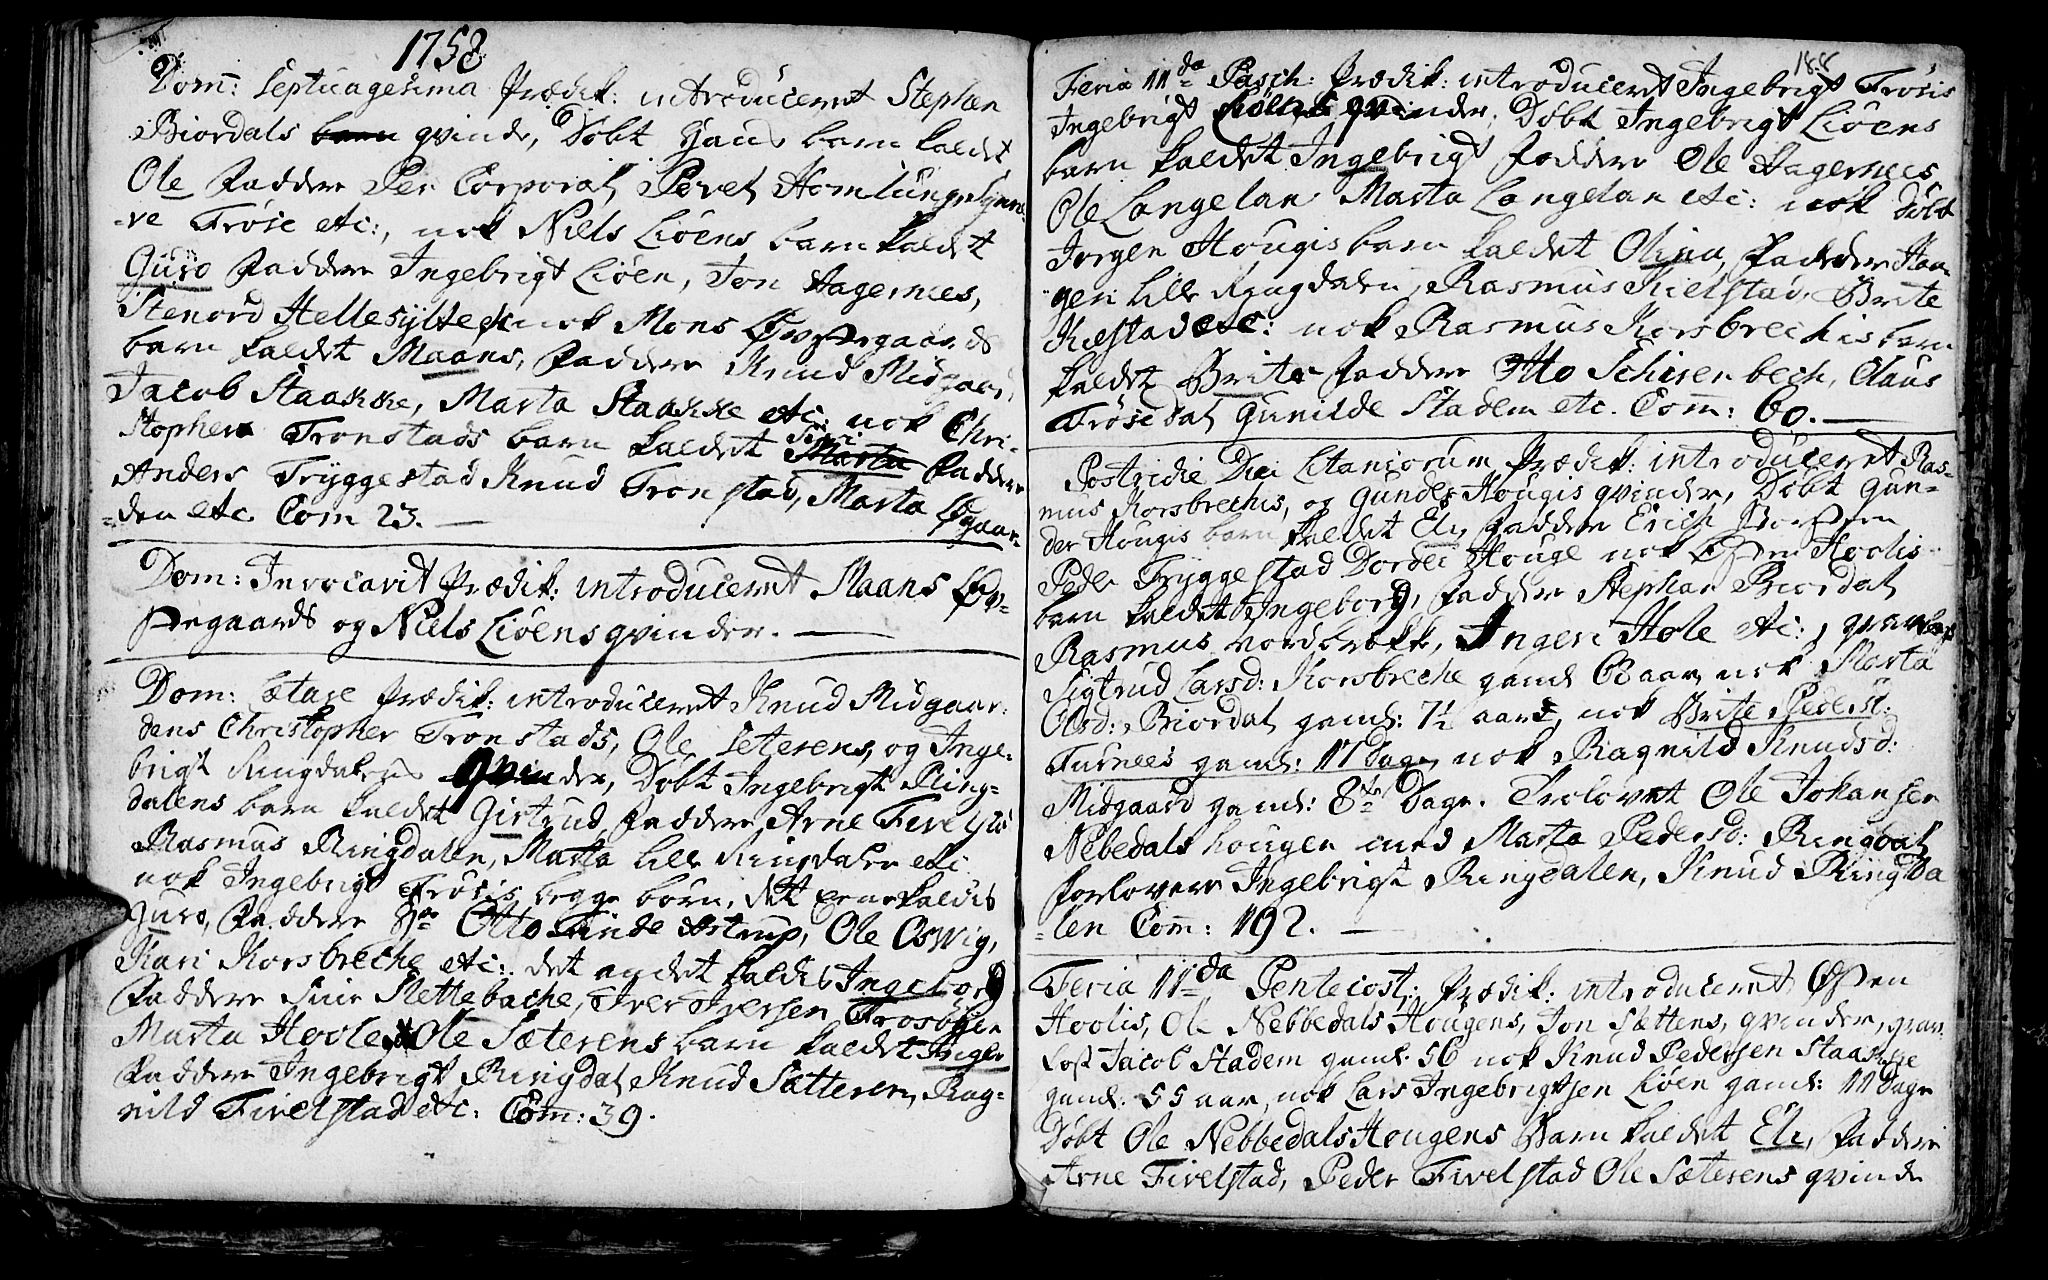 1758
Dom: Septuagesima Prædik: introduceret Stephen
Biordals barn qvinde, Døbt Hans barn kaldet
Ole Faddere Per Corporal, Povel Homlunge Synne-
-ve Frøse etc:, nok Niels Liøens barn kaldet
Guro Faddere Ingebrigt Liøen, Jon Hagernees,
Stenord Hellesylte etc nok Mons Øvstegaards
barn kaldet Maans, Faddere Knud Midgaard,
Jacob Staakke, Marta Staakke etc: nok Chri-
stopher Tronstads barn kaldet Siri Marta Faddere
Anders Tryggestad Knud Tronstad, Marta Øgaar-
-den etc. Com 23. —
Dom: Invocavit Prædik: introduceret Maans Øv-
stegaards og Niels Liøens qvinder. —
Dom: Lætare Prædik: introduceret Knud Midgaar-
dens Christopher Tronstads, Ole Seterens, og Inge-
brigt Ringdalens qvinder, Døbt Ingebrigt Ring-
dalens barn kaldet Girtrud Faddere Arne Fivelstad
Rasmus Ringdalen, Marta lille Ringdalen etc
nok Ingebrigt Frøsis begge børn, det eene kaldis
Guro, Faddere Hr Otto Finde Astrup, Ole Oswig,
Kari Korsbreche etc: det andet kaldis Ingeborg
Faddere Siur Slettebache, Iver Iversen Frosbøen
Marta Hoole, Ole Sæterens barn kaldet Inger
Faddere Ingebrigt Ringdal, Knud Sætteren, Rag-
nild Fivelstad etc: Com: 39.
188
Feria IIda Pasch: Prædik: introduceret Ingebrigt Frøsis
Ingebrigt qvinder, Døbt Ingebrigt Liøens
barn kaldet Ingebrigt Faddere Ole Hagernees,
Ole Langelan Marta Langelan etc: nok Døbt
Jørgen Hougis barn kaldet Olina, Faddere Haa-
gen lille Ringdalen, Rasmus Kielstad, Brite
Kielstad etc: nok Rasmus Korsbrechis barn
kaldet Brite Faddere Otto Schisenbech, Claus
Frøsedal Gunilde Stadem etc. Com: 60. —
Postridie Dici Litaniorum Prædik: introduceret Ras-
mus Korsbrechis, og Gunder Hougis qvinder, Døbt Gun-
der Hougis barn kaldet Eli, Faddere Erich
Peder Tryggestad Dordei Houge nok Østen Hoolis
barn kaldet Ingeborg, Faddere Stephan Biordal
Rasmus Nordbrokk, Ingeri Hole etc:,
Sigtrud Larsd: Korsbreche gamel 62 aar, nok Marta
Olsd: Biordal gaml: 7½ aars, nok Brite Pedersd:
Furnees gaml: 17 Dage, nok Ragnild Knudsd:
Midgaard gaml: 8te Dage. Trolovet Ole Johansen
Nebedals hougen med Marta Pedersd: Ringdal
Forlovere Ingebrigt Ringdalen, Knud Ringda
-len Com: 192. —
Feria IIda Pentecost: Prædik: introduceret Østen
Hoolis, Ole Nebbedals Hougens, Jon Sættens, qvinder, grav
kast Jacob Stadem gaml. 56 nok Knud Pedersen Staakke
gaml: 55 aar, nok Lars Ingebrigtsen Liøen gaml: 11 Dage
Døbt Ole Nebbedals Hougens Barn kaldet Eli, Faddere
Arne Fivelstad, Peder Fivelstad Ole Sæterens qvinde